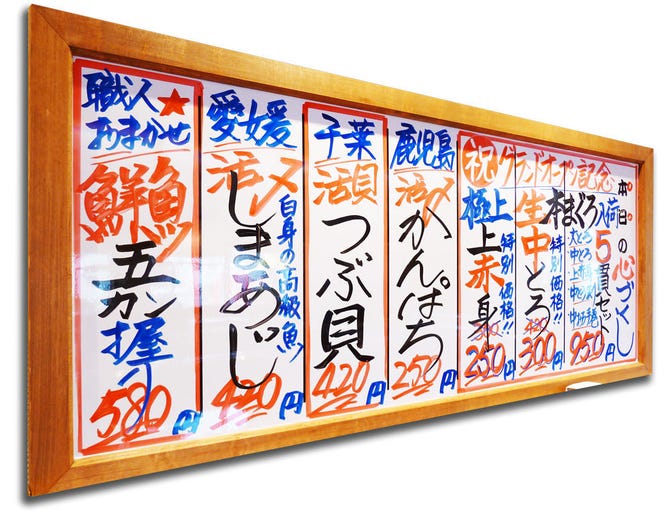 本日の心づくし
祝グランドオープン記念
本まぐろ入荷
5貫セット
950円
生中とろ
特別価格!!
300円
極上
上赤身
特別価格!!
300
250円
鹿児島
活〆
かんぱち
250円
千葉
活貝
つぶ貝
420円
愛媛
活〆
しまあじ
白身の高級魚
420円
職人★
おまかせ
鮮魚
五カン握り
580円